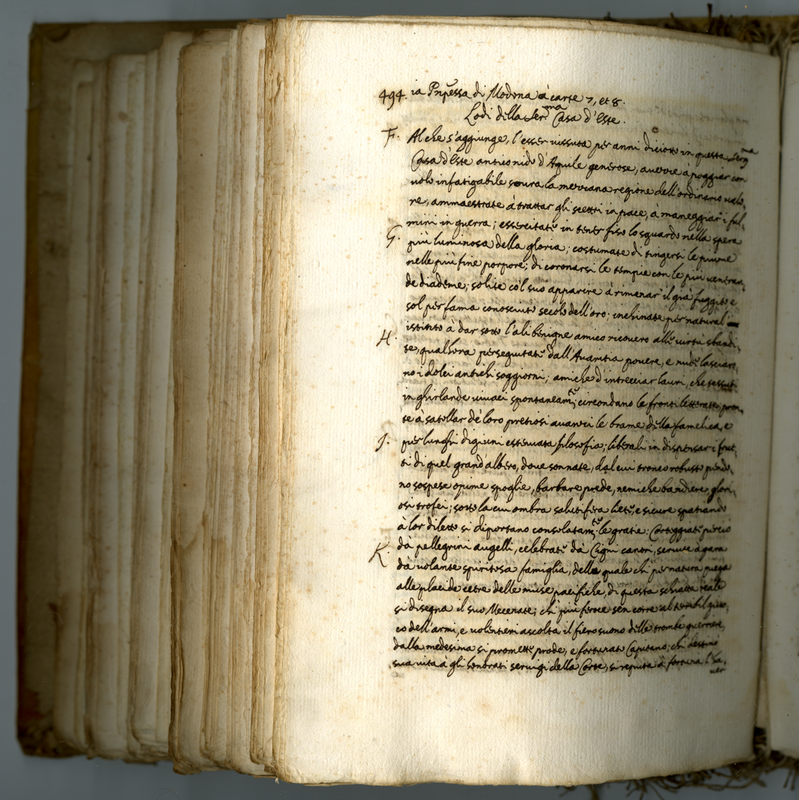 494. ia Pnpessa di Modena à carte 7, et 8.
Lodi della Ser.ma Casa d'Este.
F. Al che s'aggiunge, l'esser vissuta per anni diciotto in questa Ser.ma
Casa d'Este antico nido d'Aquile generose, avezze a poggiar con
volo infatigabile soura la meridiana regione dell'ordinario valo,
re, ammaestrate à trattar gli scettri in pace, à maneggiar i ful,
mini in guerra; essercitate in tener fiso lo sguardo nella spera
G. più luminosa della gloria; costumate di tingersi le piume
nelle più fine porpore; di coronarsi le tempia con le più
de diademe; solite co'l suo apparire à rimenar il già fuggito e
sol per fama conosciuto secolo dell'oro: inchinate per natural
istinto à dar sotto l'ali benigne amico ricovero alle virtù sbandi,
H. te, qualhora perseguitate dall'Avaritia povere, e nude lasciar,
no i dolci antichi soggiorni; amiche d'intrecciar lauri, che
in ghirlande vivaci spontaneam.te circondano le fronti letterate,
te à satollar de loro pretiosi avanzi le brame della famelica, e
J. per lunghi digiuni estenuata filosofia; liberali in dispensar i frut,
ti di quel grand'albero, dove sonnate, dal cui tronco robusto pendo,
no sospese opime spoglie, barbare prede, nemiche bandiere, glori,
osi trofei; sotto la cui ombra salutifera liete, e sicure spatiando
à lor diletto si diportano consolatam.te le gratie. Corteggiate perciò
K. dà pellegrini augelli, celebrate dà Cigni canori, servite à gara
dà volante spiritosa famiglia, della quale chi per natura piega
alle placide cetre delle muse pacifiche, di questa schiatta reale
si disegna il suo Mecenate; chi più feroce sen corre al terribil giuo,
co dell'armi, e volentieri ascolta il fiero suono delle trombe guerriere,
dalla medesima si promette prode, e fortunato Capitano; chi destina
sua vita à gli honorati servigi della Corte, si reputa à fortuna l'ha,
ver